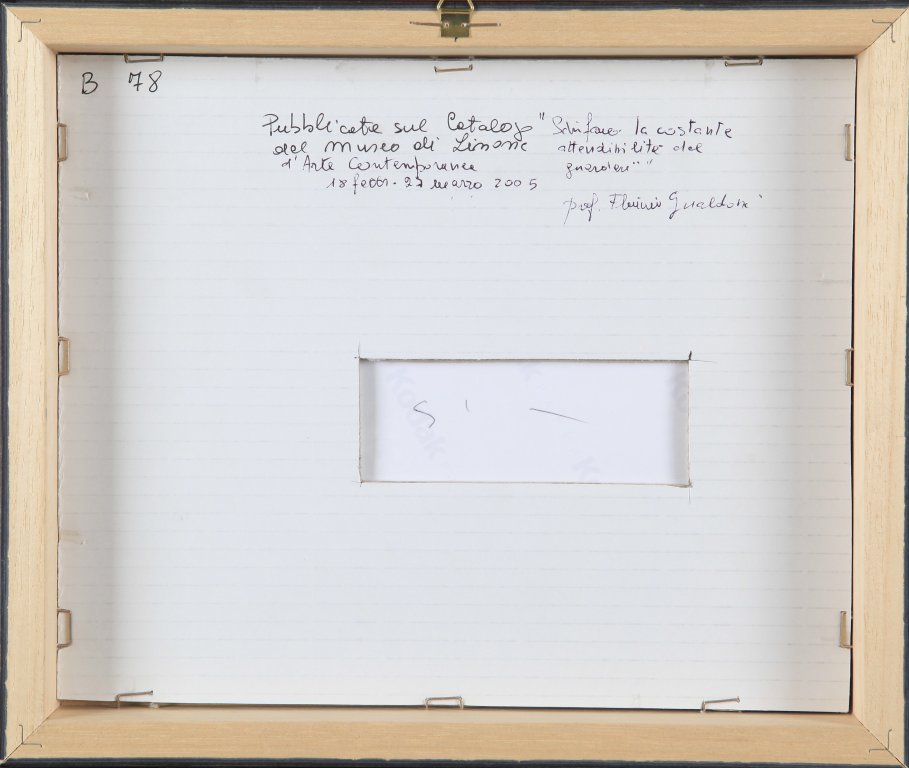 B 78
Pubblicata sul Catalogo "Schifano la costante
del Museo di Lissone attendibilità del
d'Arte Contemporanea guardare""
18 febbr. 27 marzo 2005
prof. Flaminio Gualdoni
Kodak